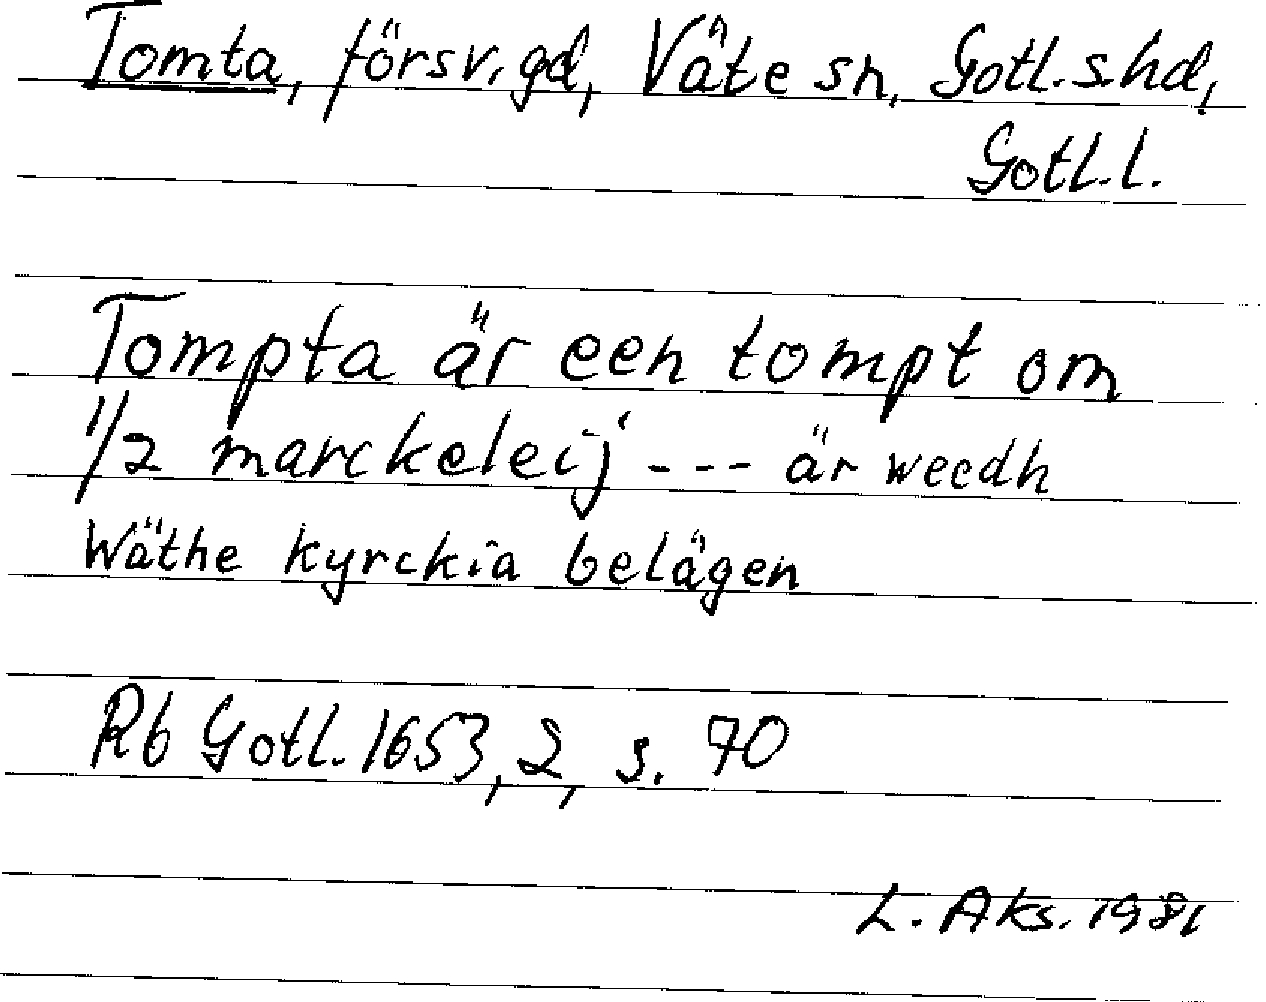 Tomta, försv. gd, Väte sn, Gotl. s hd,
Gotl. l.
Tompta är een tompt om
1/2 marckeleij --- är weedh
Wäthe kyrckia belägen
Rb Gotl. 1653, 2, s. 70
L. Aks. 1981